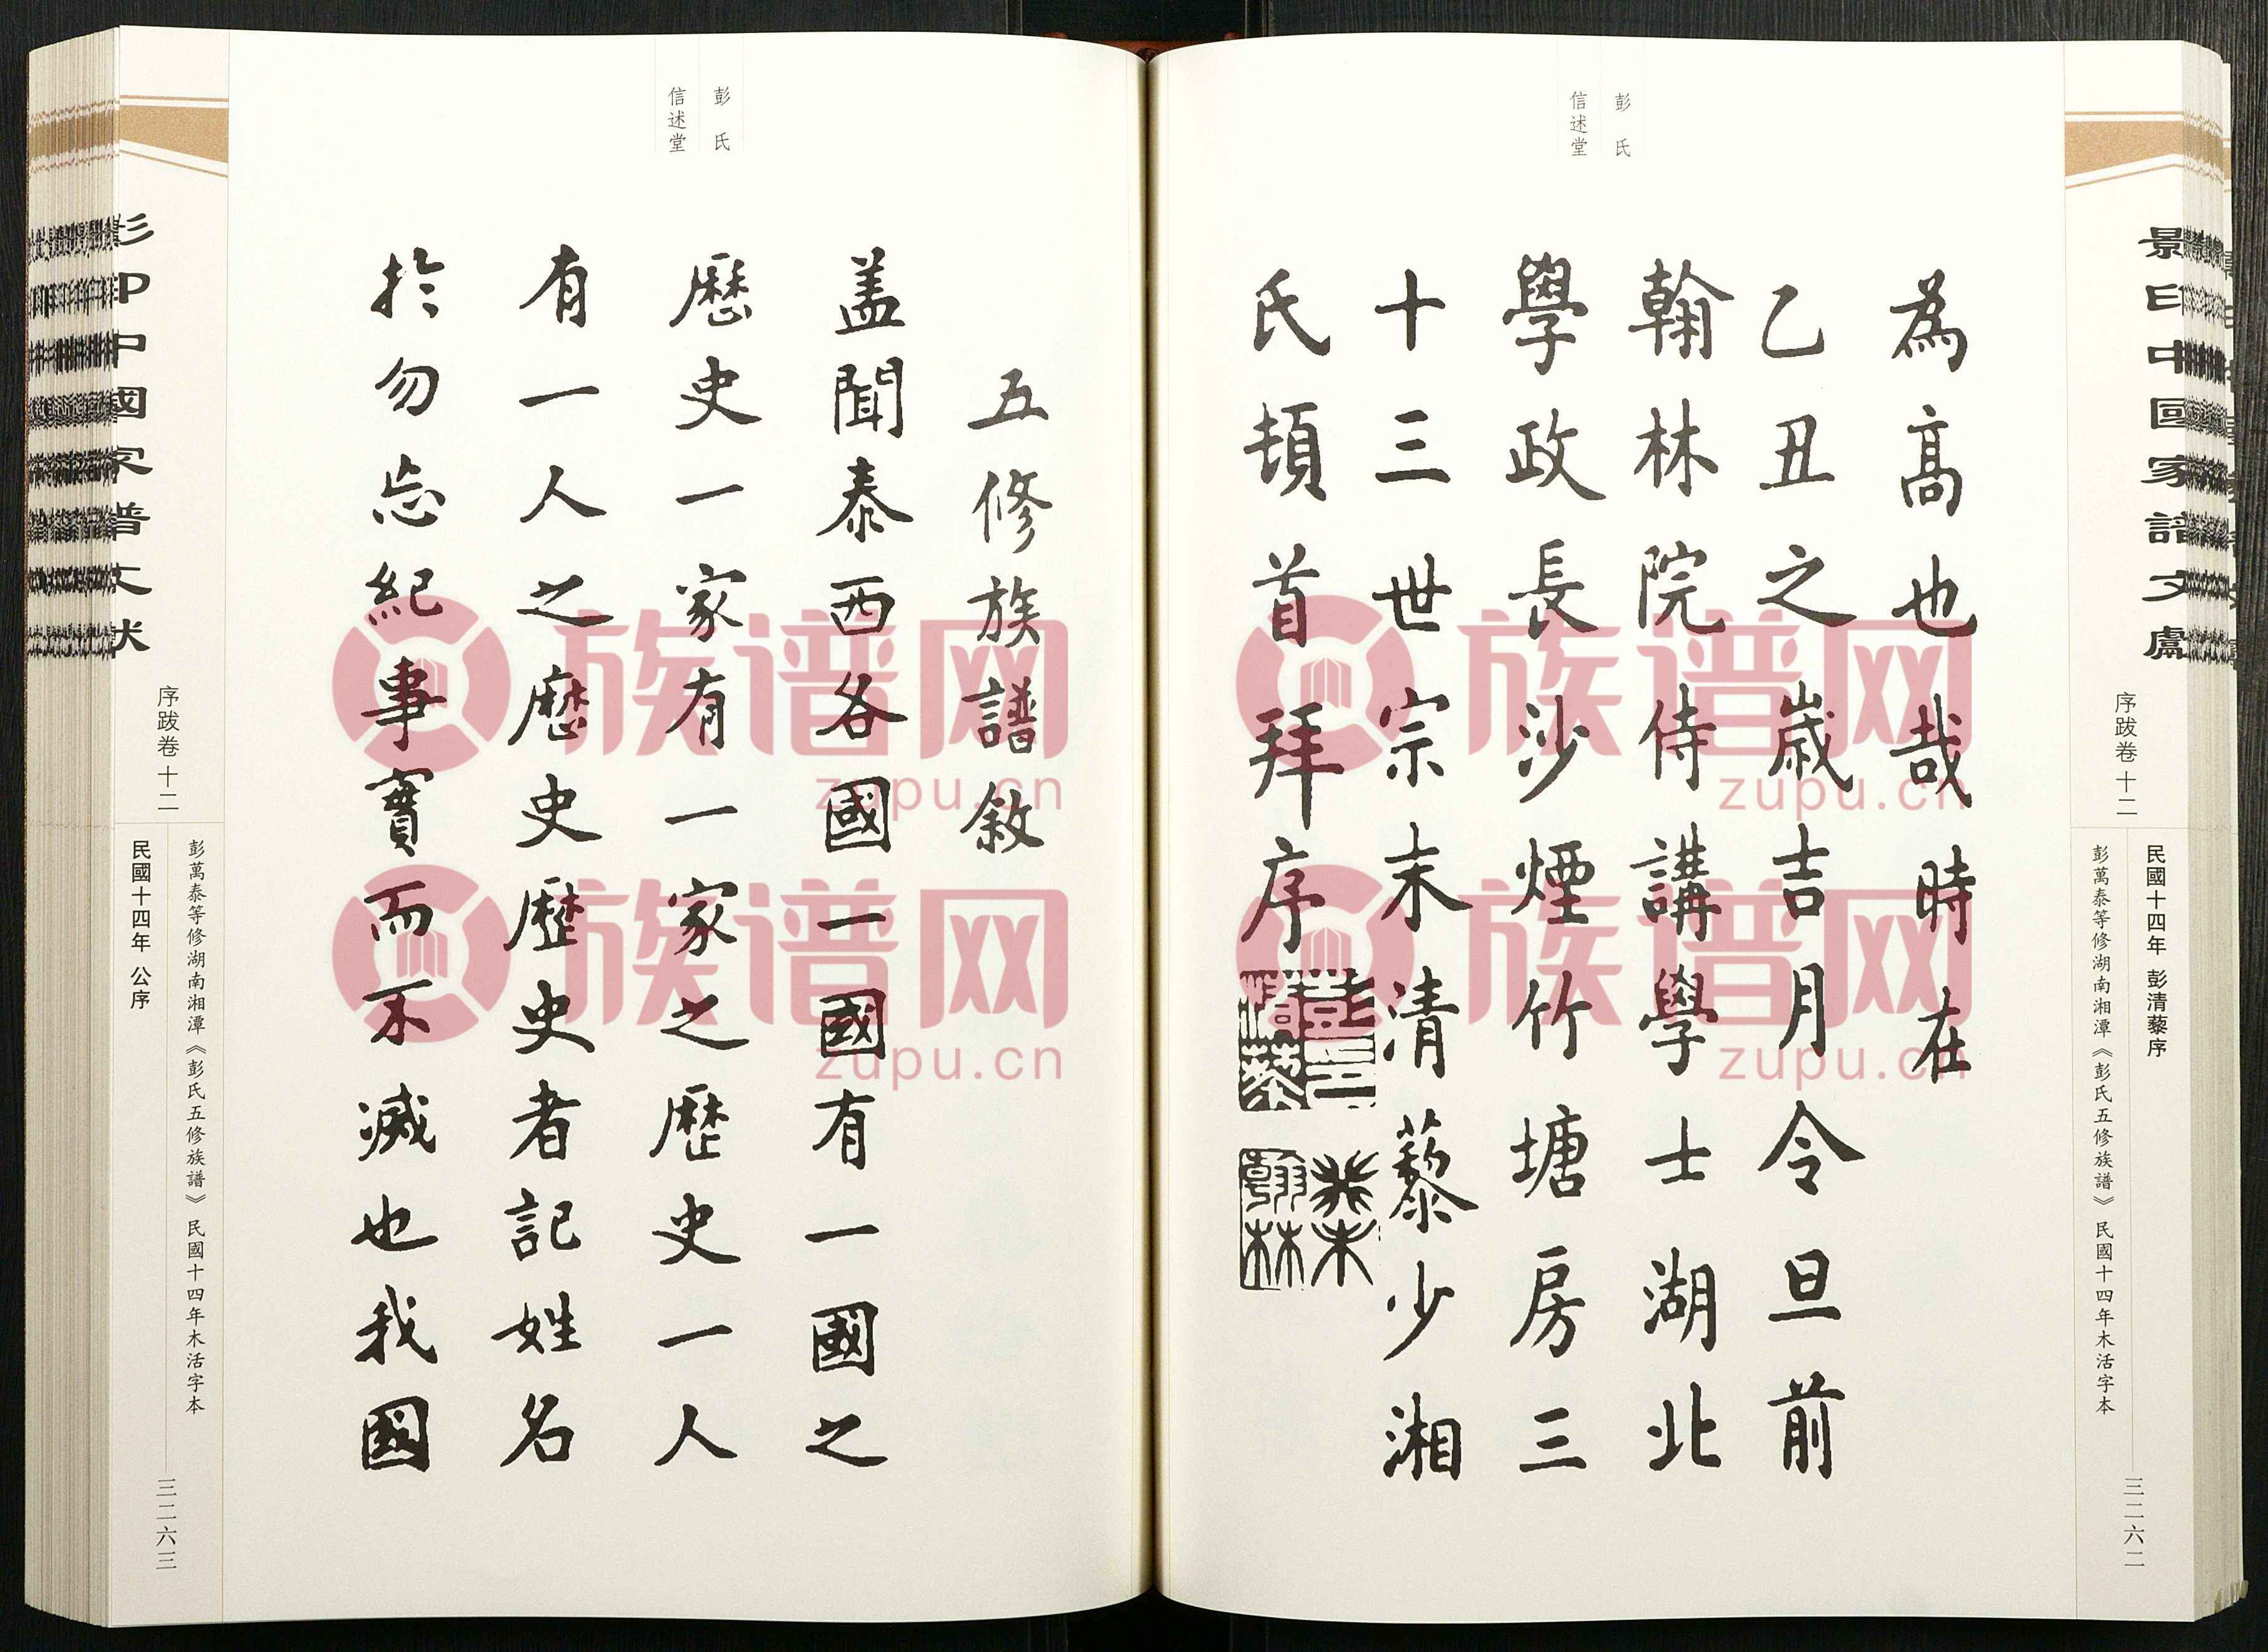 景印中國家譜文獻
序跋卷 十二
民國十四年 彭清藜序
彭萬泰等修湖南湘潭《彭氏五修族譜》民國十四年木活字本
三二六二
彭氏
信述堂
為高也哉時在
乙丑之歲吉月令旦前
翰林院侍講學士湖北
學政長沙煙竹塘房三
十三世宗末清藜少湘
氏頓首拜序
彭氏
信述堂
五修族譜敘
盖聞泰西各國一國有一國之
歷史一家有一家之歷史一人
有一人之歷史歷史者記姓名
於勿忘紀事實而不滅也我國
影印中國家譜文獻
序跋卷 十二
彭萬泰等修湖南湘潭《彭氏五修族譜》民國十四年木活字本
民國十四年 公序
三二六三
族谱网
zupu.cn
族谱网
zupu.cn
族谱网
zupu.cn
族谱网
zupu.cn